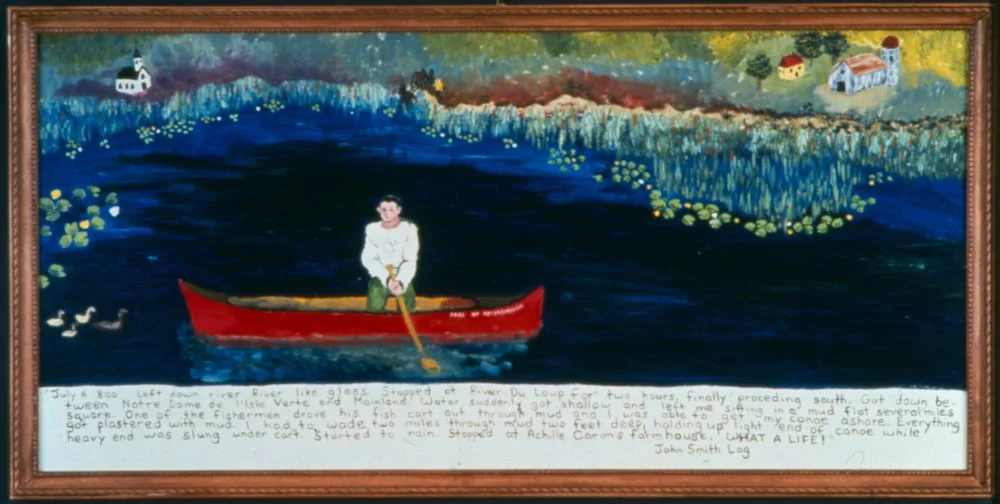 "July 6 8:00 Left down river River like glass Stopped at River Du Loup for two hours, finally proceding south. Got down be-
tween Notre Dame de l'Isle Verte and Mainland. Water suddenly got shallow and left me sitting in a mud flat several miles
square. One of the fishermen drove his fish cart out through mud and I was able to get my canoe ashore. Everything
got plastered with mud. I had to wade two miles through mud two feet deep, holding up light end of canoe while
heavy end was slung under cart. Started to rain. Stopped at Achille Caron's farmhouse. WHAT A LIFE!"
John Smith Log